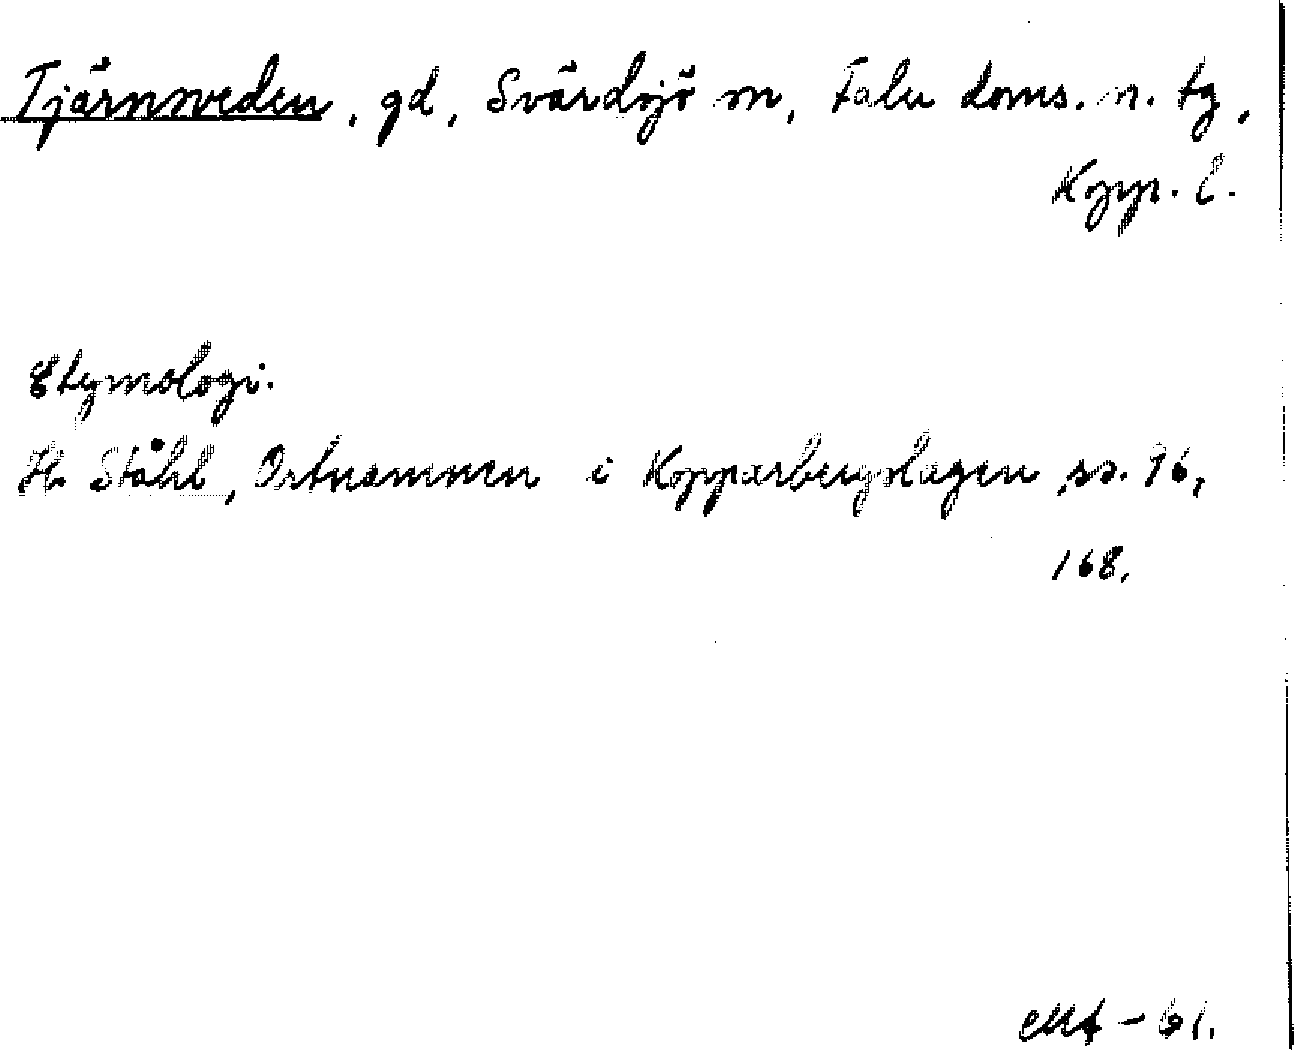 Tjärnsveden, gd, Svärdsjö sn, Falu doms. n. tg,
Kopp. l.
Etymologi.
H. Ståhl, Ortnamnen i Kopparbergslagen ss. 96,
168.